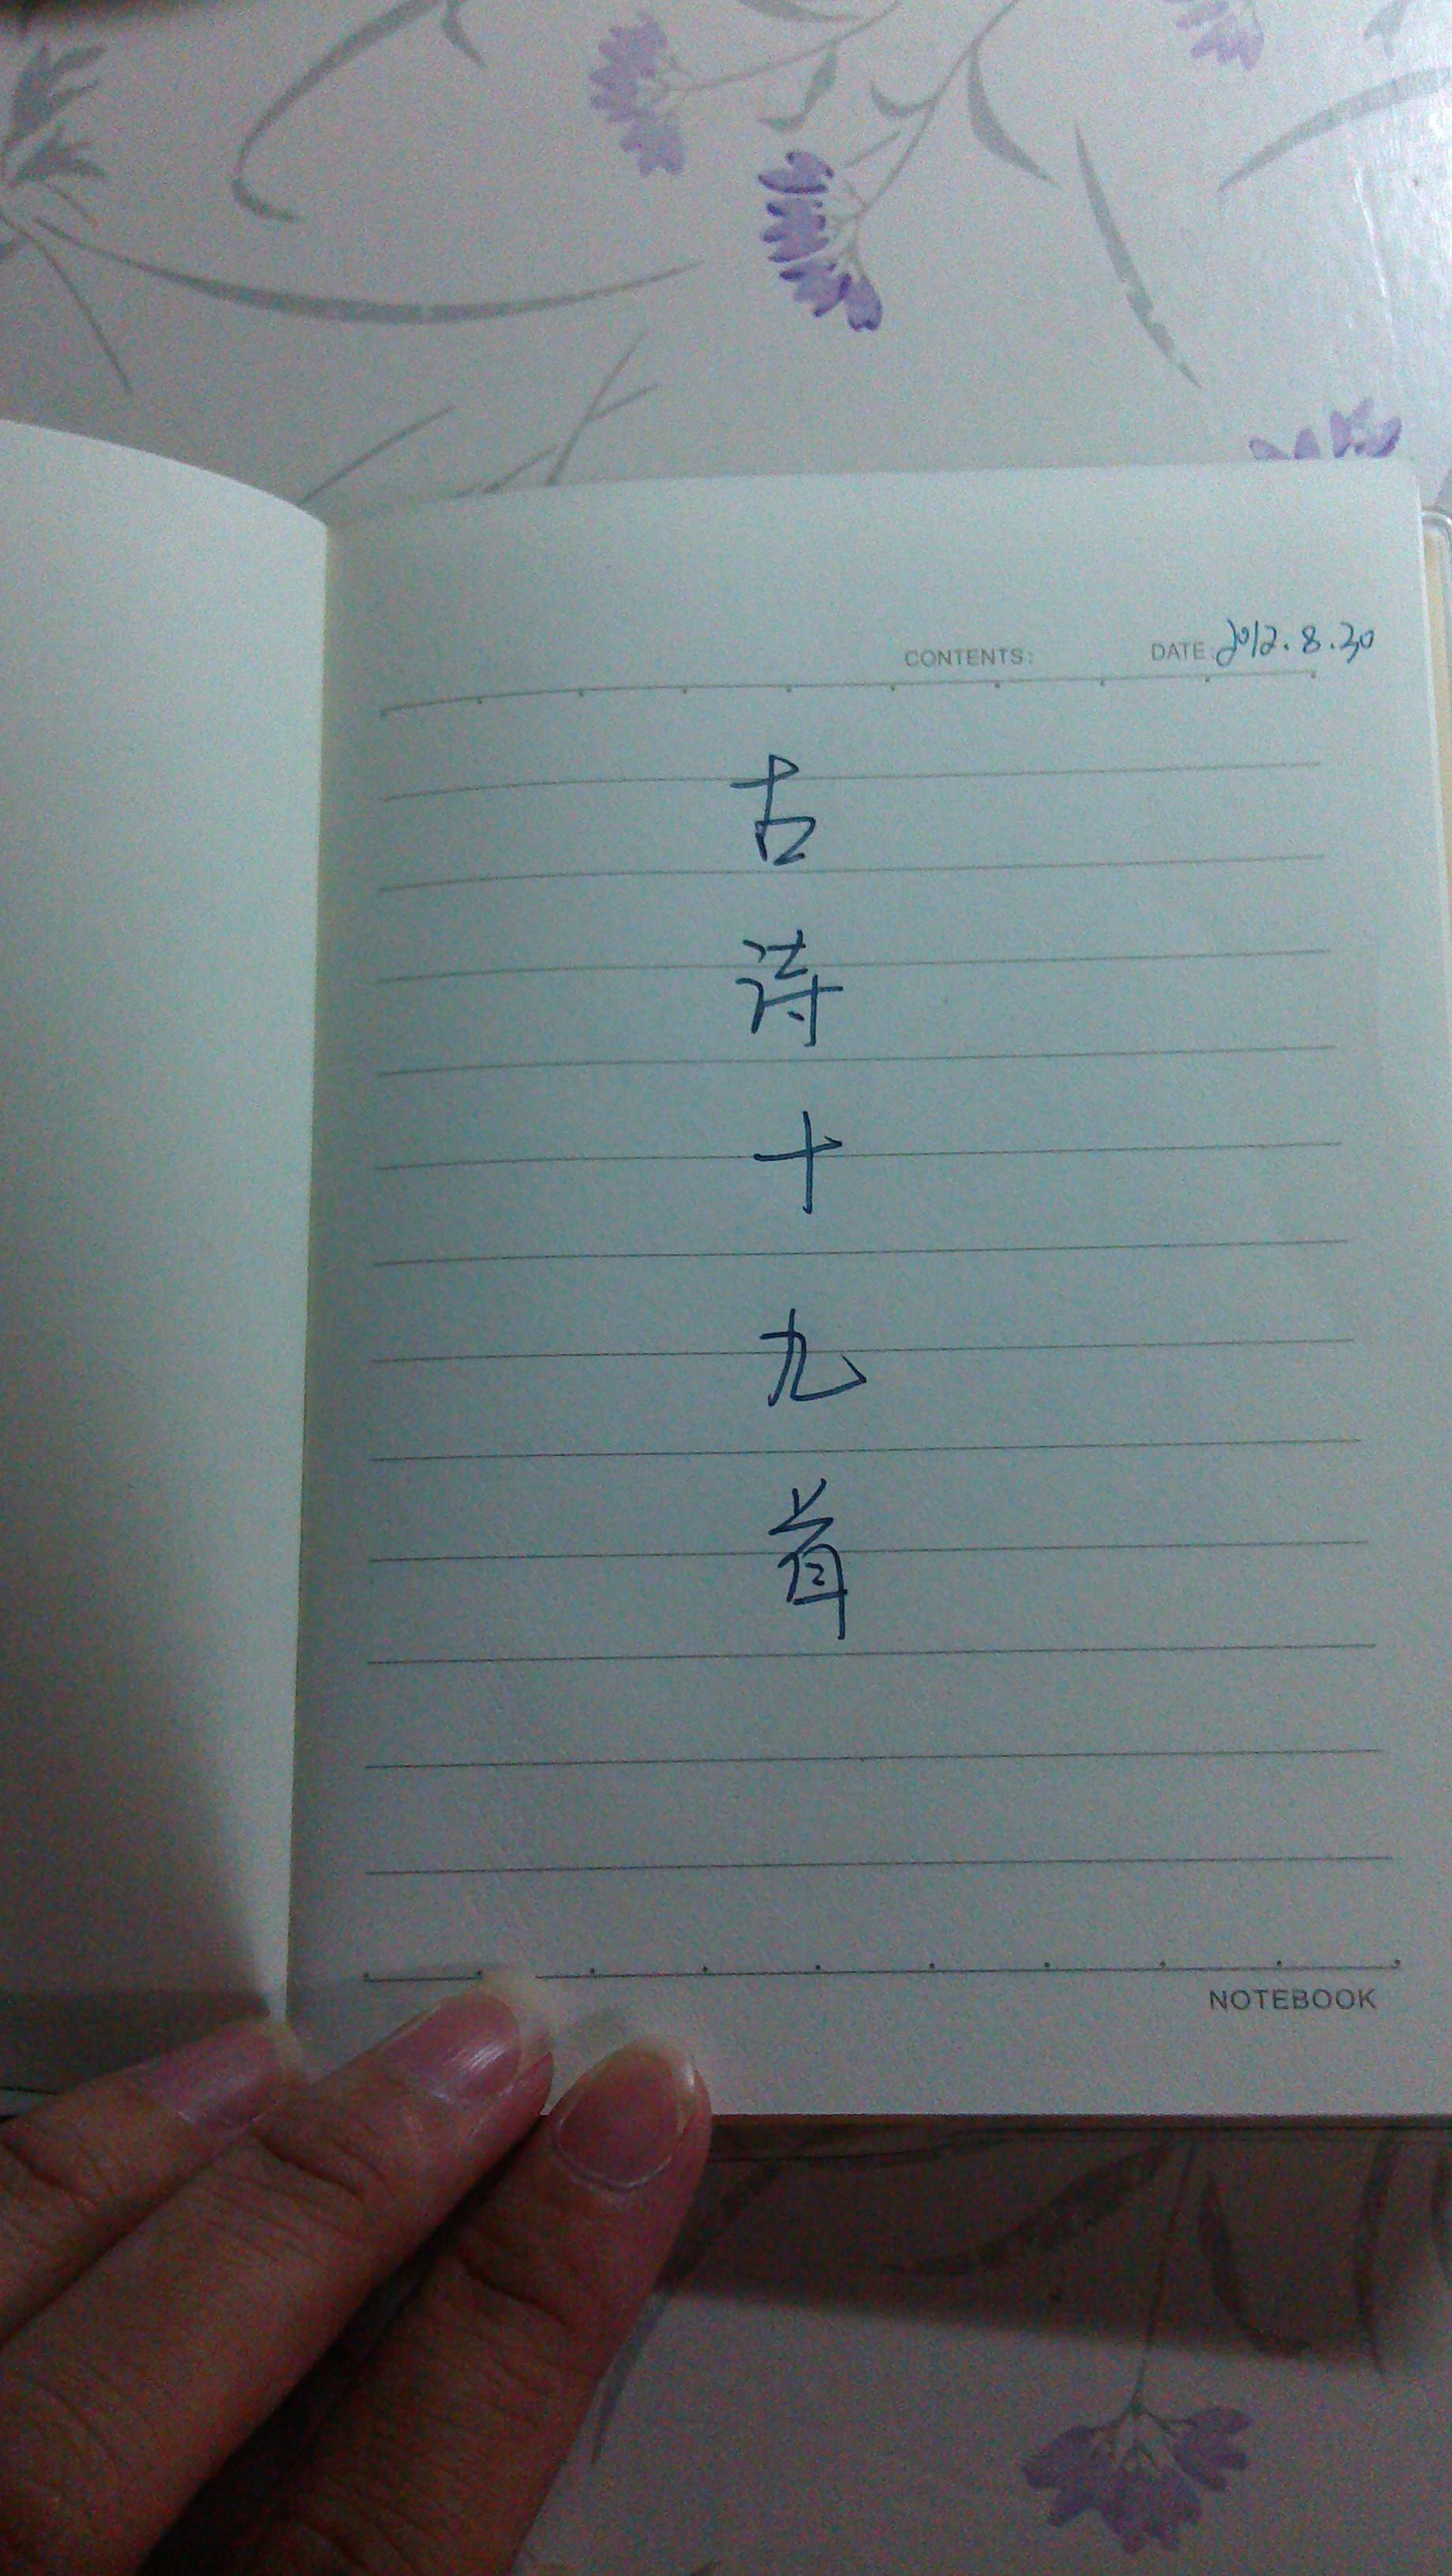 CONTENTS: DATE: 2012.8.30
古
诗
十
九
首
NOTEBOOK